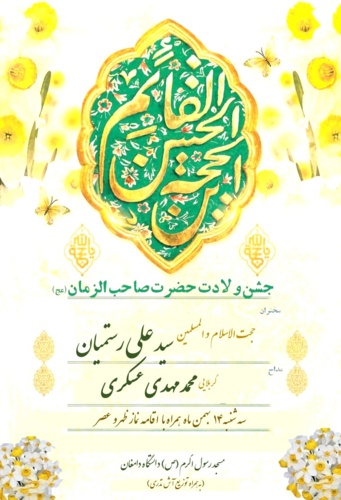 الحجة بن الحسن القائم
جشن ولادت حضرت صاحب الزمان (عج)
سخنران
حجت الاسلام و المسلمین سید علی رستمیان
مداح
کربلایی محمد مهدی عسکری
سه شنبه ۱۴ بهمن ماه همراه با اقامه نماز ظهر و عصر
مسجد رسول اکرم (ص) دانشگاه دامغان
(به همراه توزیع آش نذری)